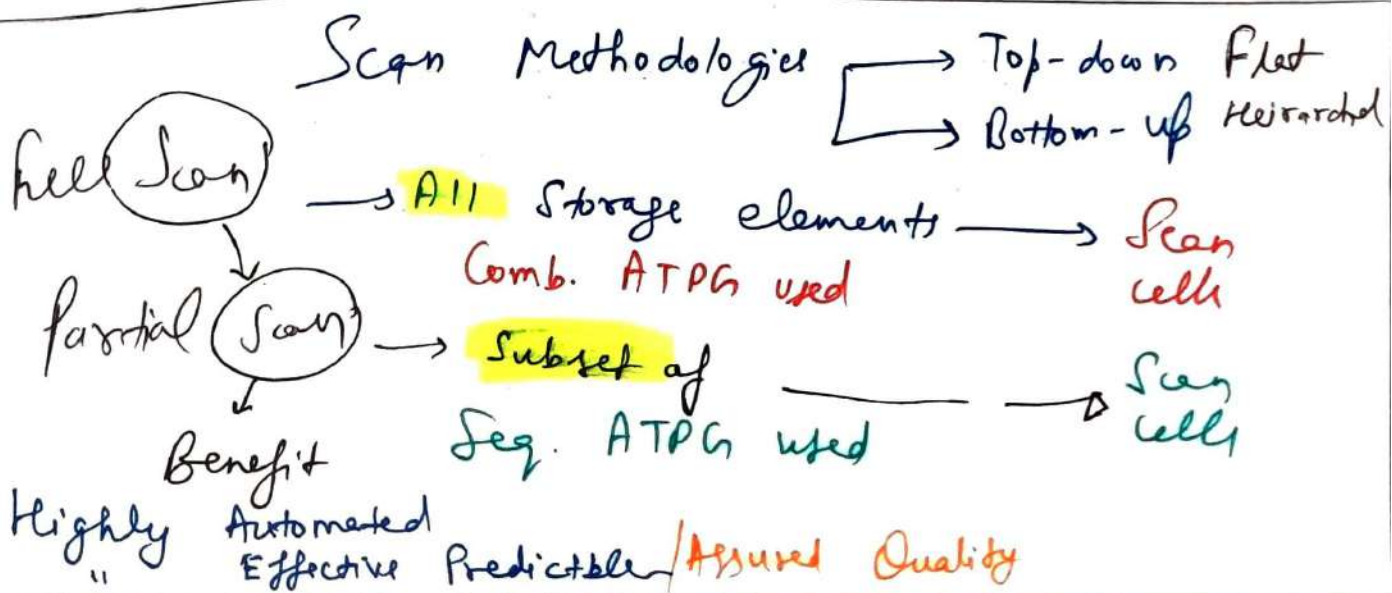 Scan Methodologies → Top-down Flat
→ Bottom-up Heirarchal
Full Scan → All Storage elements → Scan cells
Comb. ATPG used
Partial Scan → Subset of —— → Scan cells
Seq. ATPG used
Benefit
Highly Automated
" Effective Predictable/Assured Quality